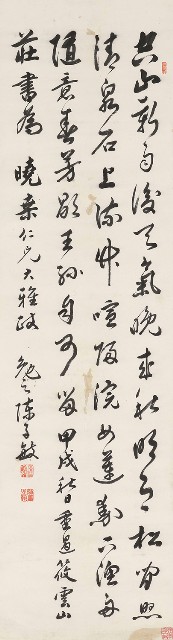 空山新雨後天氣晚來秋明月松間照
清泉石上流竹喧歸浣女蓮動下漁舟
隨意春芳歇王孫自可留 甲戌秋日重過筱雲山
莊書為 曉 仁兄大雅政 陳子敏